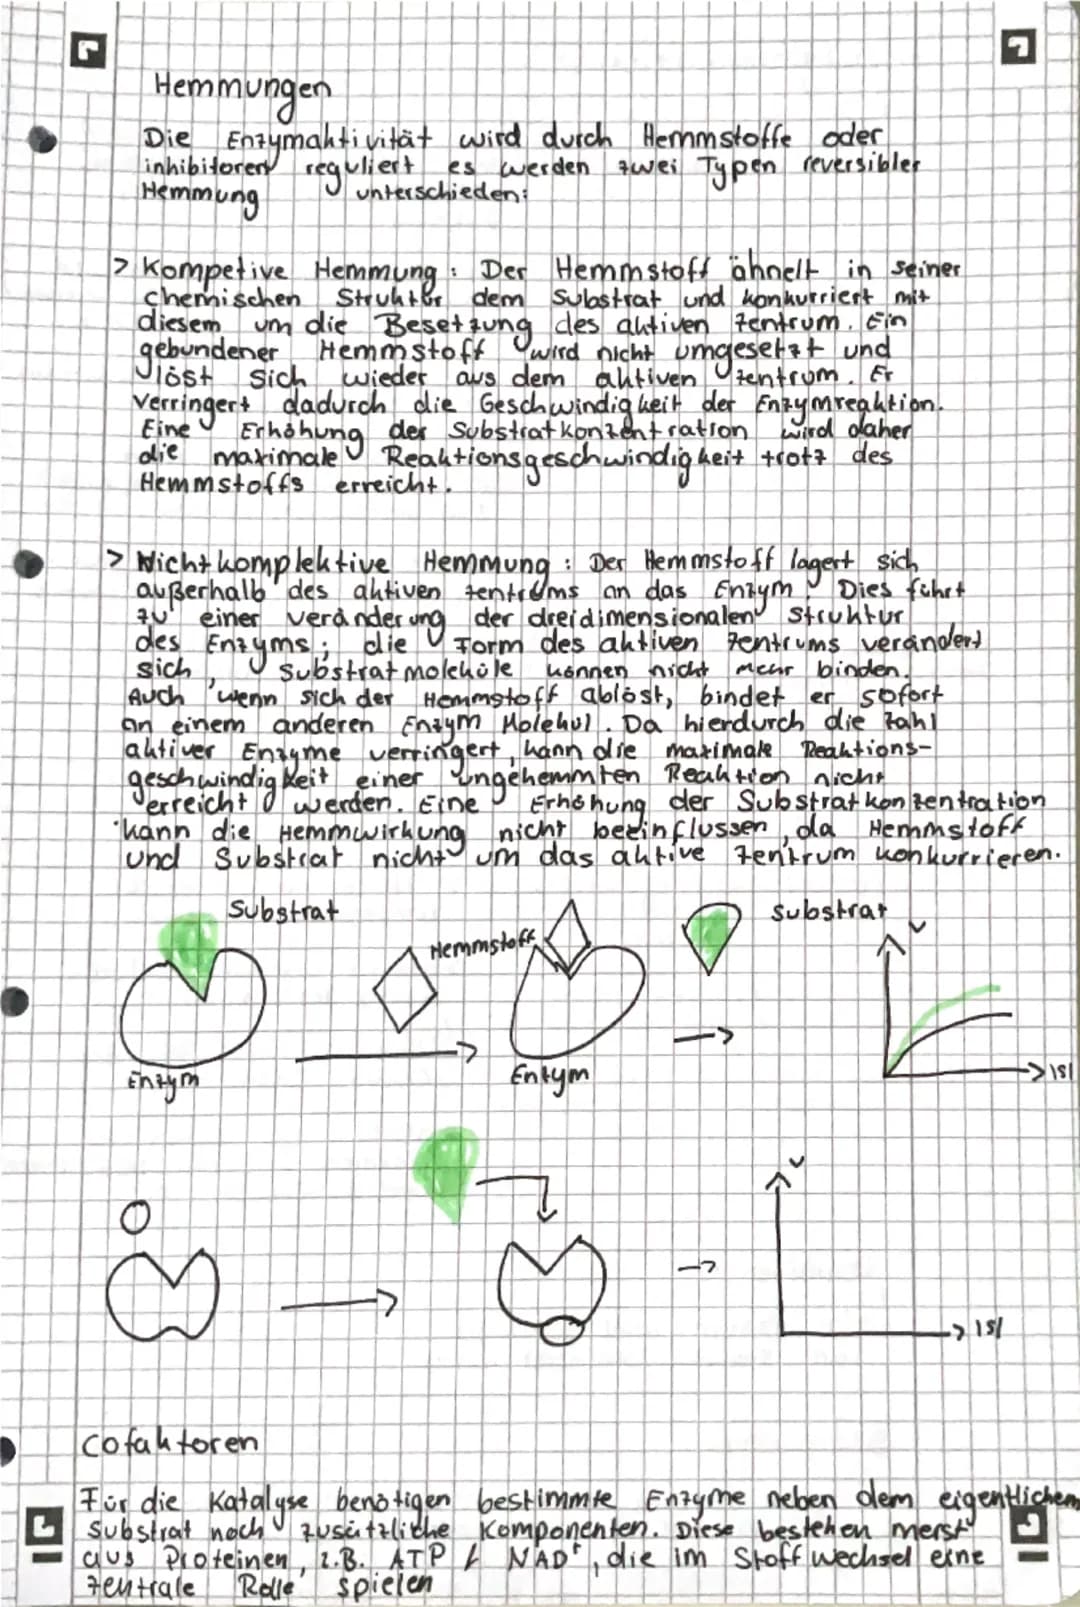 Hemmungen
Die Enzymaktivität wird durch Hemmstoffe oder
inhibitoren reguliert es werden zwei Typen reversibler
Hemmung unterschieden:
> Kompetive Hemmung: Der Hemmstoff ähnelt in seiner
chemischen Struktur dem Substrat und konkurriert mit
diesem um die Besetzung des aktiven Zentrum. Ein
gebundener Hemmstoff wird nicht umgesetzt und
löst sich wieder aus dem aktiven Zentrum. Er
verringert dadurch die Geschwindigkeit der Enzymreaktion.
Eine Erhöhung der Substratkonzentration wird daher
die maximale Reaktionsgeschwindigkeit trotz des
Hemmstoffs erreicht.
> Nichtkomplektive Hemmung: Der Hemmstoff lagert sich
außerhalb des aktiven Zentrums an das Enzym. Dies führt
zu einer veränderung der dreidimensionalen Struktur
des Enzyms; die Form des aktiven Zentrums verändert
sich, Substratmoleküle können nicht mehr binden.
Auch wenn sich der Hemmstoff ablöst, bindet er sofort
an einem anderen Enzym Molekül. Da hierdurch die Zahl
aktiver Enzyme verringert, kann die maximale Reaktions-
geschwindigkeit einer ungehemmten Reaktion nicht
erreicht werden. Eine Erhöhung der Substratkonzentration
kann die Hemmwirkung nicht beeinflussen, da Hemmstoff
und Substrat nicht um das aktive Zentrum konkurrieren.
Substrat Hemmstoff Substrat v
Enzym Enzym |S|
v
|S|
Cofaktoren
Für die Katalyse benötigen bestimmte Enzyme neben dem eigentlichem
Substrat noch zusätzliche Komponenten. Diese bestehen meist
aus Proteinen, z.B. ATP / NAD⁺, die im Stoffwechsel eine
zentrale Rolle spielen